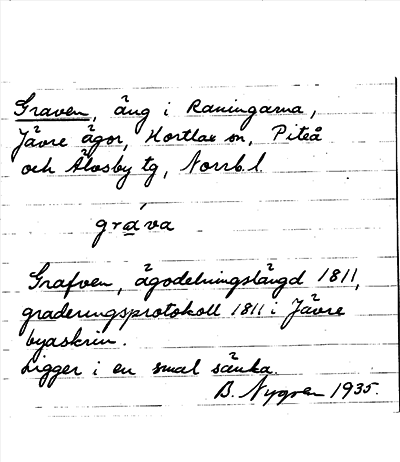 Graven, äng i Raningarna,
Jävre ägor, Hortlax sn, Piteå
och Älvsby tg, Norrb.l.
gráva
Grafven, ägodelningslängd 1811,
graderingsprotokoll 1811 i Jävre
byaskrin.
Ligger i en smal sänka.
B. Nygren 1935.